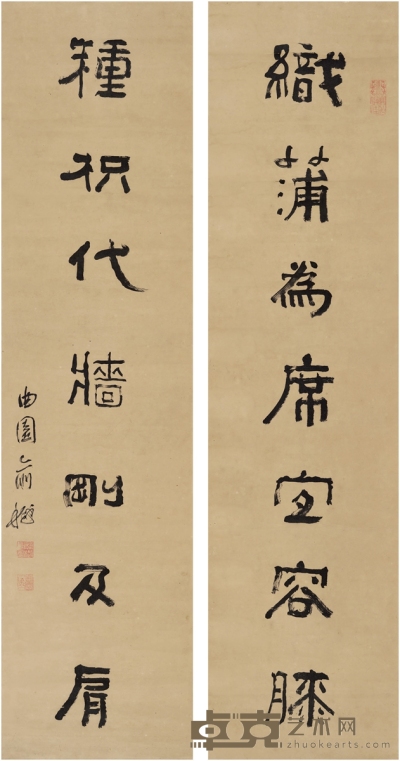 織蒲為席宜容膝
種枳代牆剛及肩
曲園俞樾
卓克艺术网
zhuokearts.com